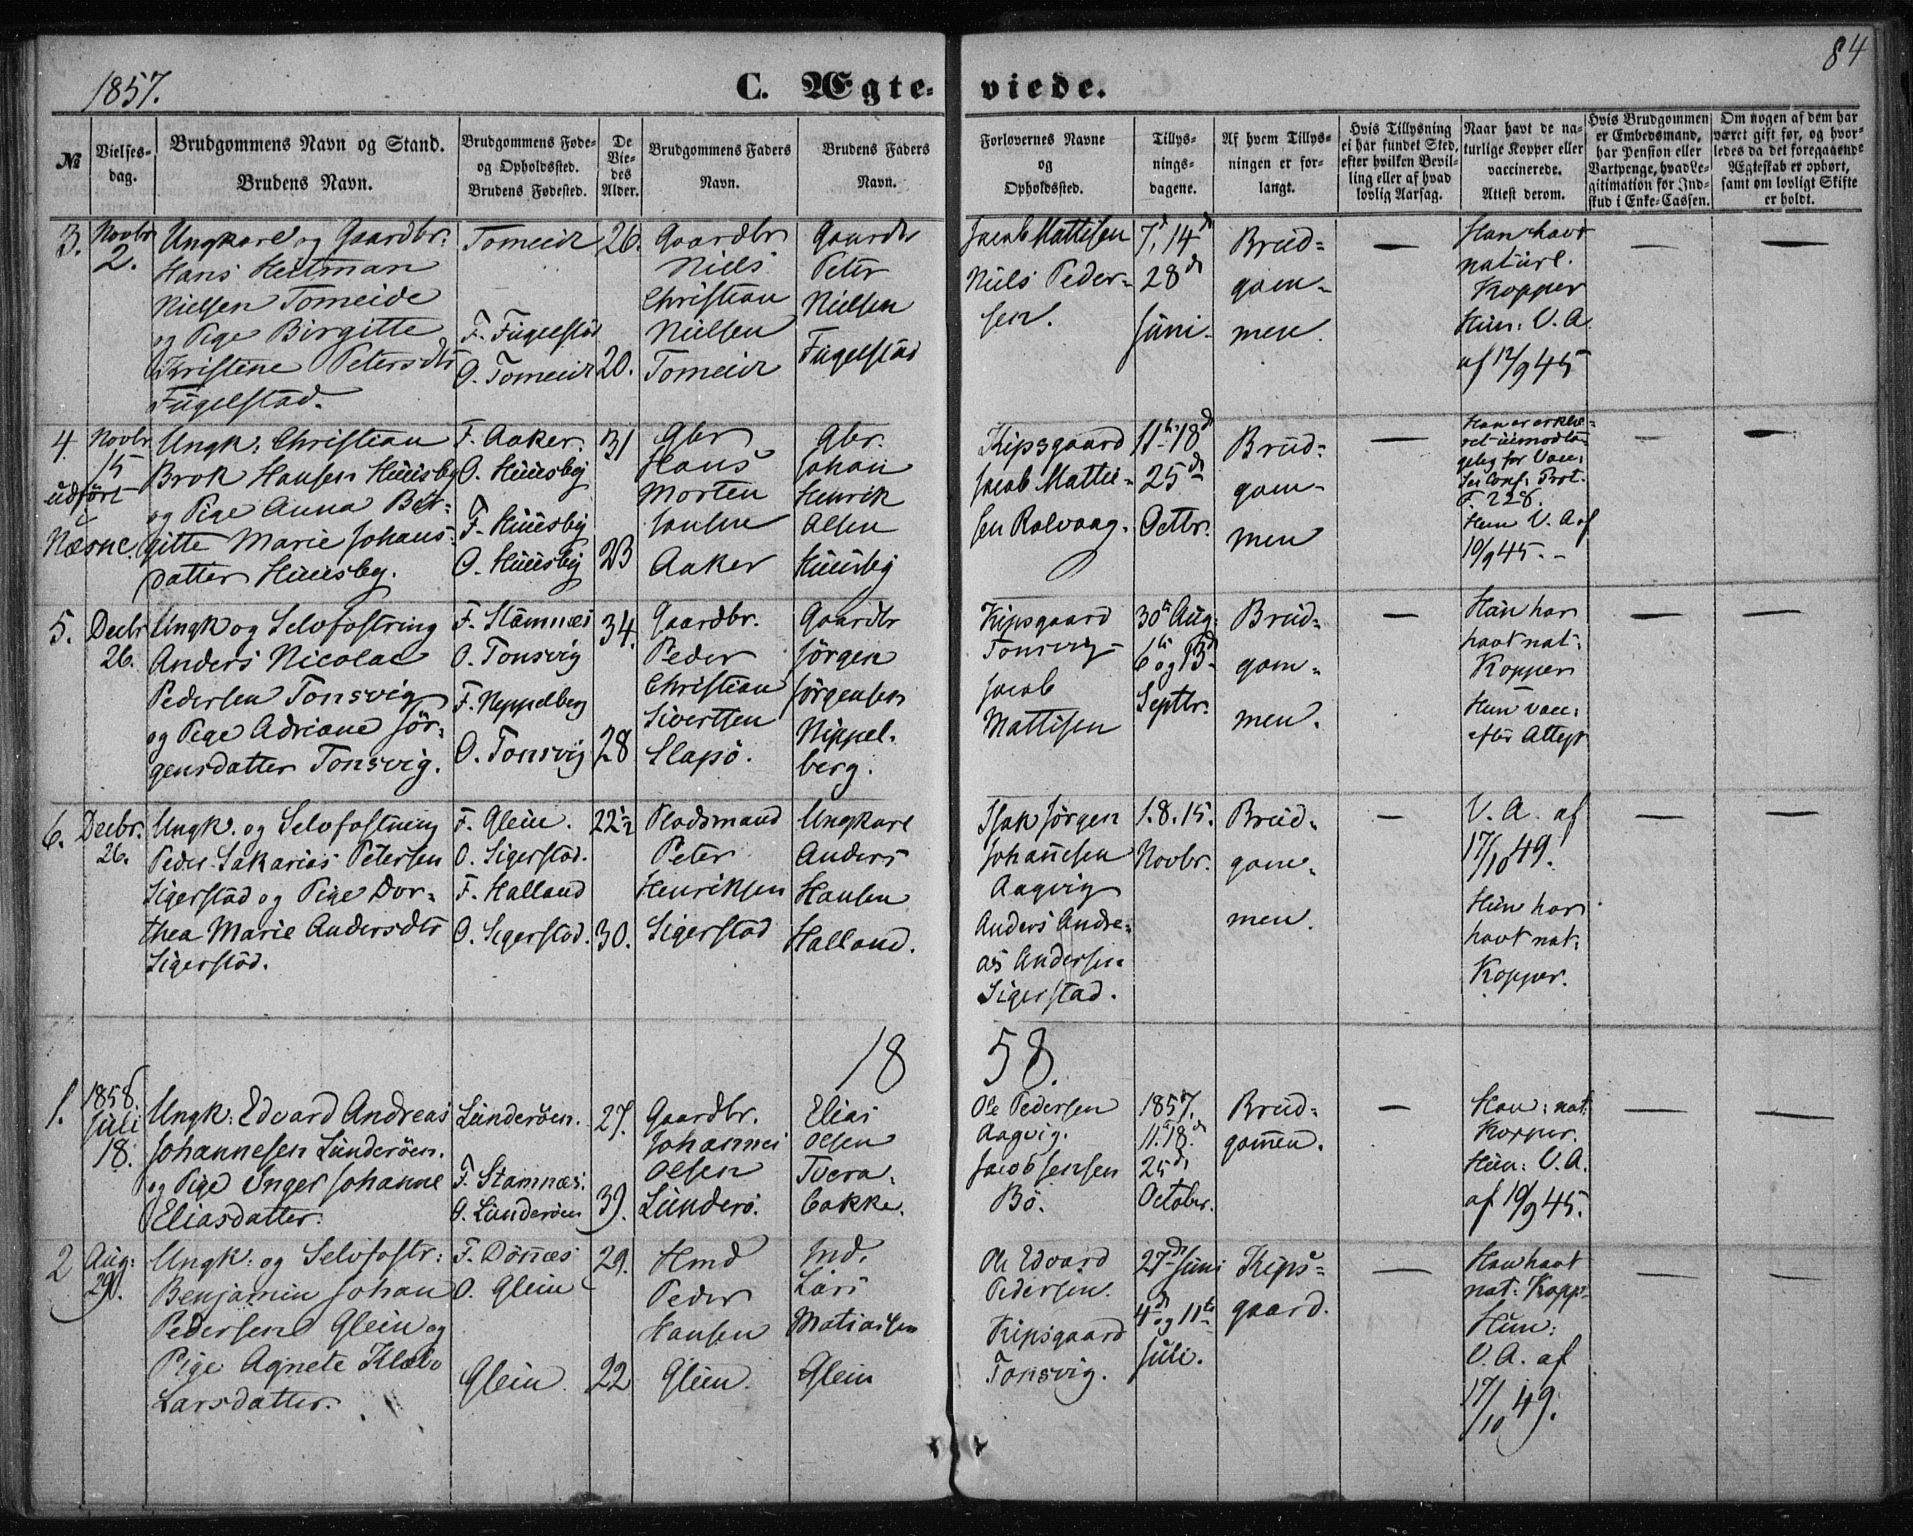 84
1857.
C. Ægteviede.
№
Vielses-
dag.
Brudgommens Navn og Stand.
Brudens Navn.
Brudgommens Føde-
og Opholdssted.
Brudens Fødested.
De
Vie-
des
Alder.
Brudgommens Faders
Navn.
Brudens Faders
Navn.
Forlovernes Navne
og
Opholdssted.
Tillys-
nings-
dagene.
Af hvem Tillys-
ningen er for-
langt.
Hvis Tillysning
ei har fundet Sted,
efter hvilken Bevil-
ling eller af hvad
lovlig Aarsag.
Naar havt de na-
turlige Kopper eller
vaccinerede.
Attest derom.
Hvis Brudgommen
er Embedsmand,
har Pension eller
Vartpenge, hvad Le-
gitimation for Ind-
skud i Enke-Cassen.
Om nogen af dem har
været gift før, og hvor-
ledes da det foregaaende
Ægteskab er ophørt,
samt om lovligt Skifte
er holdt.
3.
Novbr
2.
Ungkarl og Gaardbr:
Hans Heitman
Nielsen Tomeide
og Pige Birgitte
Kristine Petersdtr
Fugelstad.
Tomeide
F. Fugelstad
O. Tomeide
26.
20.
Gaardbr
Niels
Christian
Nielsen
Tomeide
Gaardbr
Peter
Nielsen
Fugelstad
Jacob Mattisen
Niels Peder-
sen.
7d, 14d
28d
Juni
Brud-
gom-
men.
—
Han havt
naturl.
Kopper
Hun: V. A
af 12/9 45
—
—
4
Novbr
15
udført
Næsne.
Ungk: Christian
Brok Hansen Huusby
og Pige Anna Bir-
gitte Marie Johans-
datter Huusby.
F. Aaker.
O. Huusby
F. Huusby
O. Huusby
31
23
Gbr
Hans
Morten
Jansen
Aaker
Gbr.
Johan
Henrik
Olsen
Huusby
Kipsgaard
Jacob Matti-
sen Rolvaag.
11te 18d
25d
Octbr.
Brud-
gom-
men
—
Han er erklæ-
ret uimodta-
gelig for Vacc:
See Conf. Prot.
F. 228.
Hun V. A af
10/9 45.
—
—
5.
Decbr
26.
Ungk og Selvfostring
Anders Nicolai
Pedersen Tonsvig
og Pige Adriane Jør-
gensdatter Tonsvig.
F. Stamnæs
O. Tonsvig
F. Neppelberg
O. Tonsvig
34.
28
Gaardbr.
Peder
Christian
Sivertsen
Slapø.
Gaardbr
Jørgen
Jørgensen
Nippel-
berg.
Kipsgaard
Tonsvig
Jacob
Mattisen
30te Aug:
6te og 13d
Septbr.
Brud-
gom-
men.
—
Han har
havt nat:
Kopper
Hun vacc:
efter Attest
—
—
6.
Decbr.
26.
Ungk. og Selvfostring
Peder Sakarias Petersen
Sigerstad og Pige Dor-
thea Marie Andersdtr
Sigerstad.
F. Glein.
O. Sigerstad.
F. Halland
O. Sigerstad.
22½
30.
Pladsmand
Peter
Henriksen
Sigerstad
Ungkarl
Anders
Hansen
Halland.
Isak Jørgen
Johansen
Aagvig
Anders Andre-
as Andersen
Sigerstad.
1. 8. 15.
Novbr.
Brud-
gom-
men.
—
V. A. af
17/10 49.
Hun har
havt nat:
Kopper.
—
—
1858.
1.
1858
Juli
18.
Ungk: Edvard Andreas
Johannesen Lunderøen.
og Pige Inger Johanne
Eliasdatter.
Lunderøen.
F. Stamnæs.
O. Lunderøen
27.
39.
Gaardbr.
Johannes
Olsen
Lunderø.
Elias
Olsen
Tvera-
bakke.
Ole Pedersen
Aagvig.
Jacob Jensen
Bø.
1857.
11te 18d
25d
October.
Brud-
gommen.
—
Han: nat:
Kopper.
Hun: V. A.
af 10/9 45.
—
—
2
Aug:
29.
Ungk: og Selvfostr:
Benjamin Johan
Pedersen Glein og
Pige Agnete Klæbo
Larsdatter.
F. Dønnæs
O. Glein
Glein.
29.
22
Hmd
Peder
Hansen
Glein.
Ind.
Lars
Matiasen
Glein
Ole Edvard
Pedersen.
Kipsgaard
Tonsvig.
27d Juni
4d og 11te
Juli.
Kips-
gaard.
—
Han havt
nat: Kopp.
Hun:
V. A. af
17/10 49.
—
—